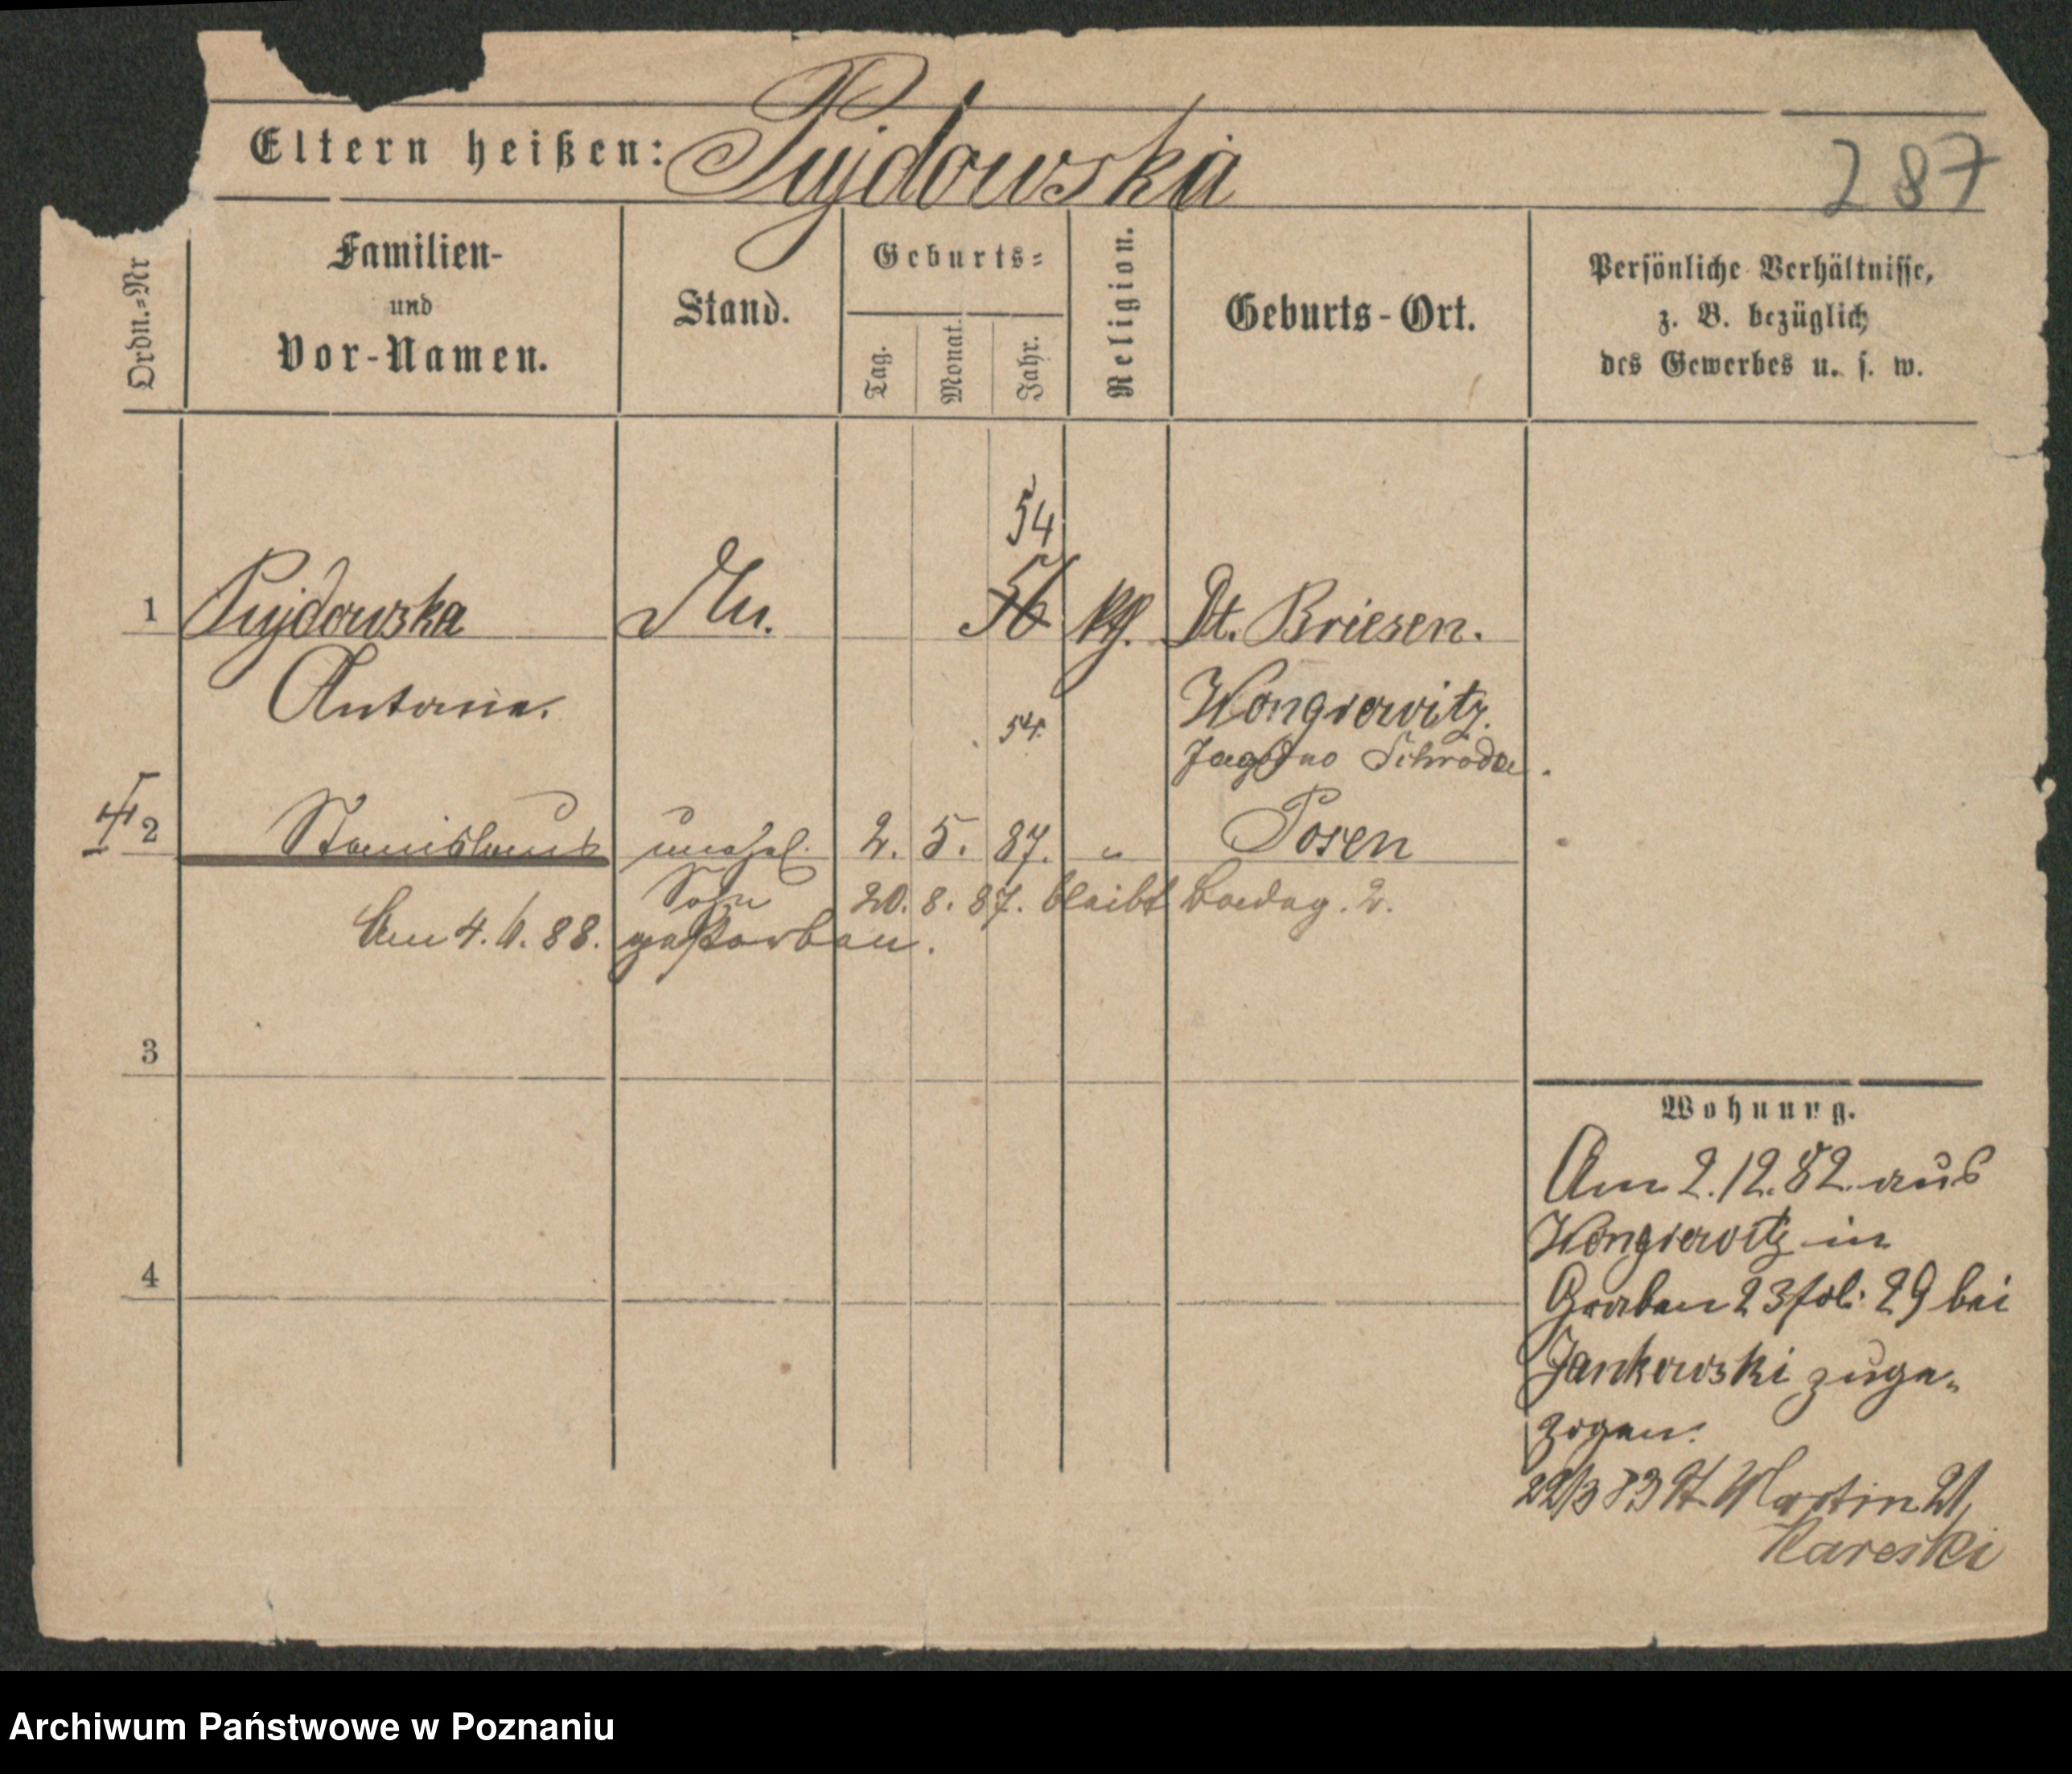 Eltern heißen: Pujdowska
287
Ordn.=Nr
Familien-
und
Vor-Namen.
Stand.
Geburts=
Tag.
Monat.
Jahr.
Religion.
Geburts-Ort.
Persönliche Verhältnisse,
z. B. bezüglich
des Gewerbes u. s. w.
54
1 Pujdowska 56 Dt. Briesen.
Antonie. Wongrowitz.
54.
2 Stanislaus unehel. 2. 5. 87. " Posen
Sohn 20. 8. 87. bleibt
Am 4. 6. 88. gestorben.
3
4
Wohnung.
Am 2.12.82 aus
Wongrowitz in
Graben 23 fol: 29 bei
Jankowski zuge-
zogen.
22/3 83 St. Martin 21,
Kareski
Archiwum Państwowe w Poznaniu